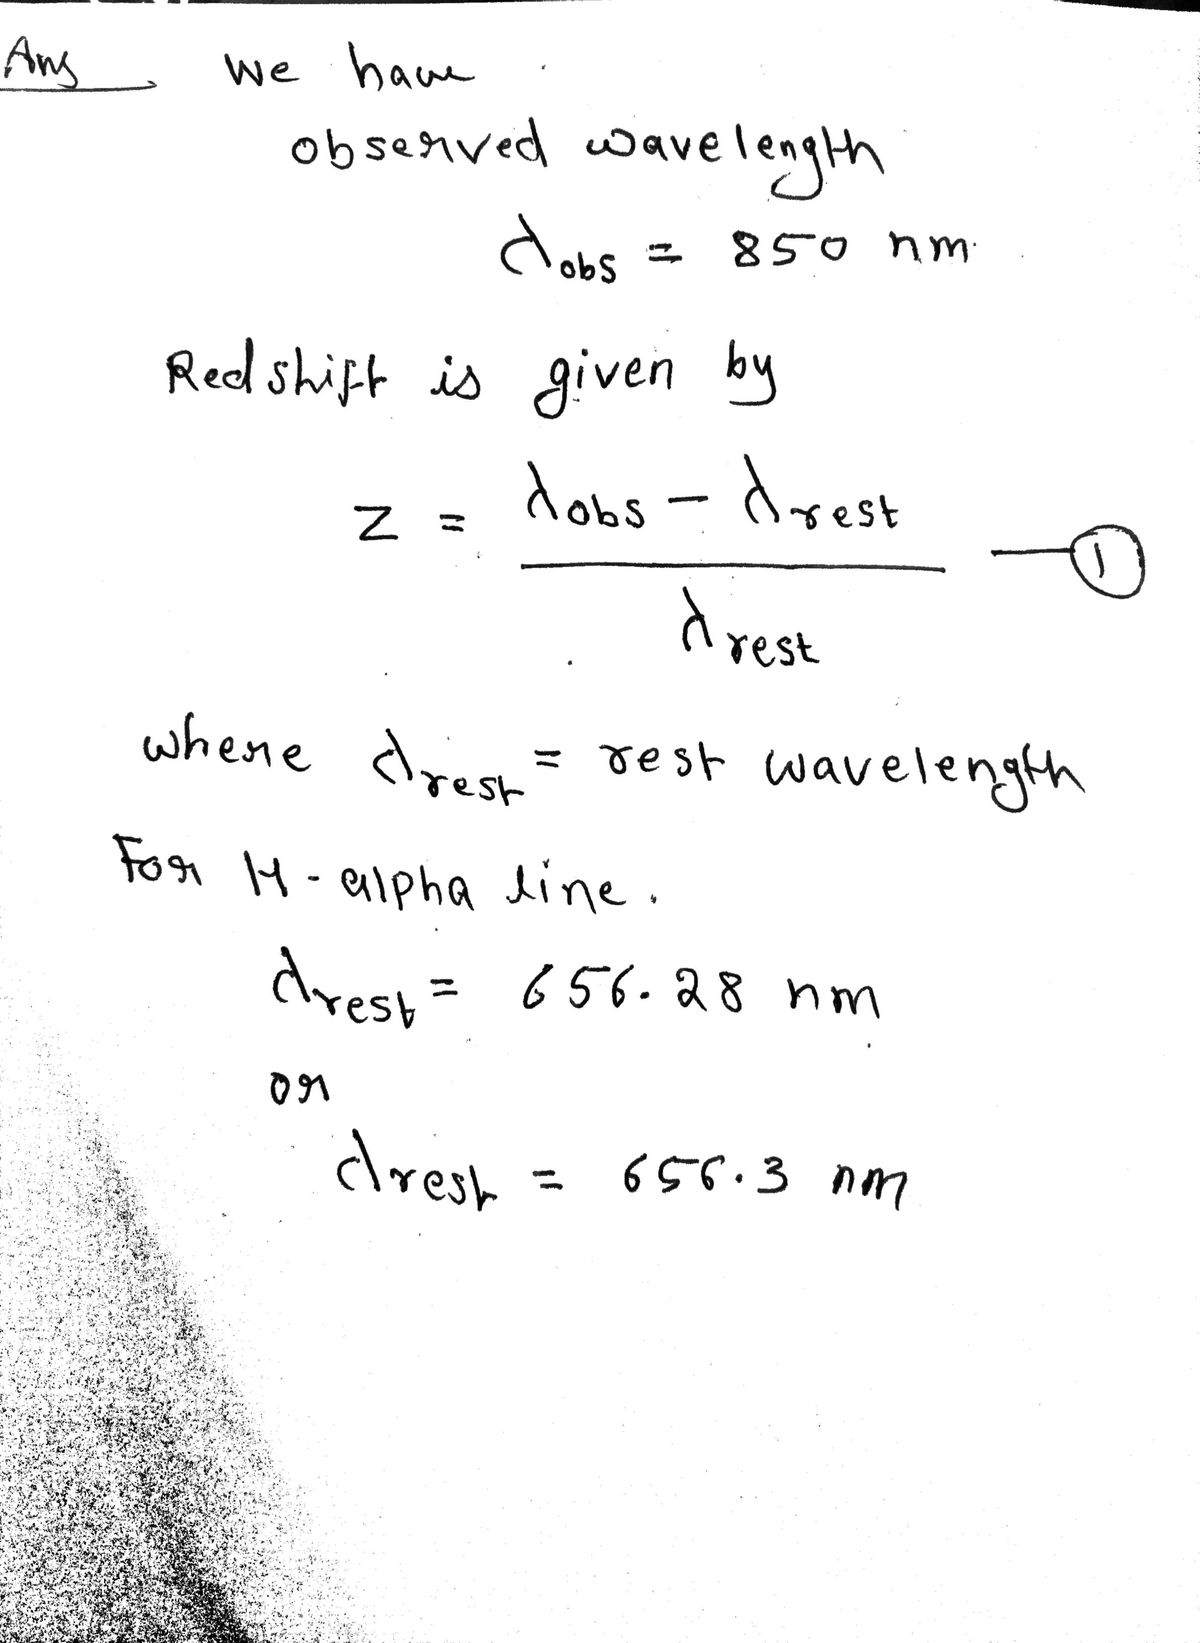 Ans we have
observed wavelength
λobs = 850 nm.
Redshift is given by
z = λobs - λrest —①
λrest
where λrest = rest wavelength
For H-alpha line.
λrest = 656.28 nm
or
λrest = 656.3 nm